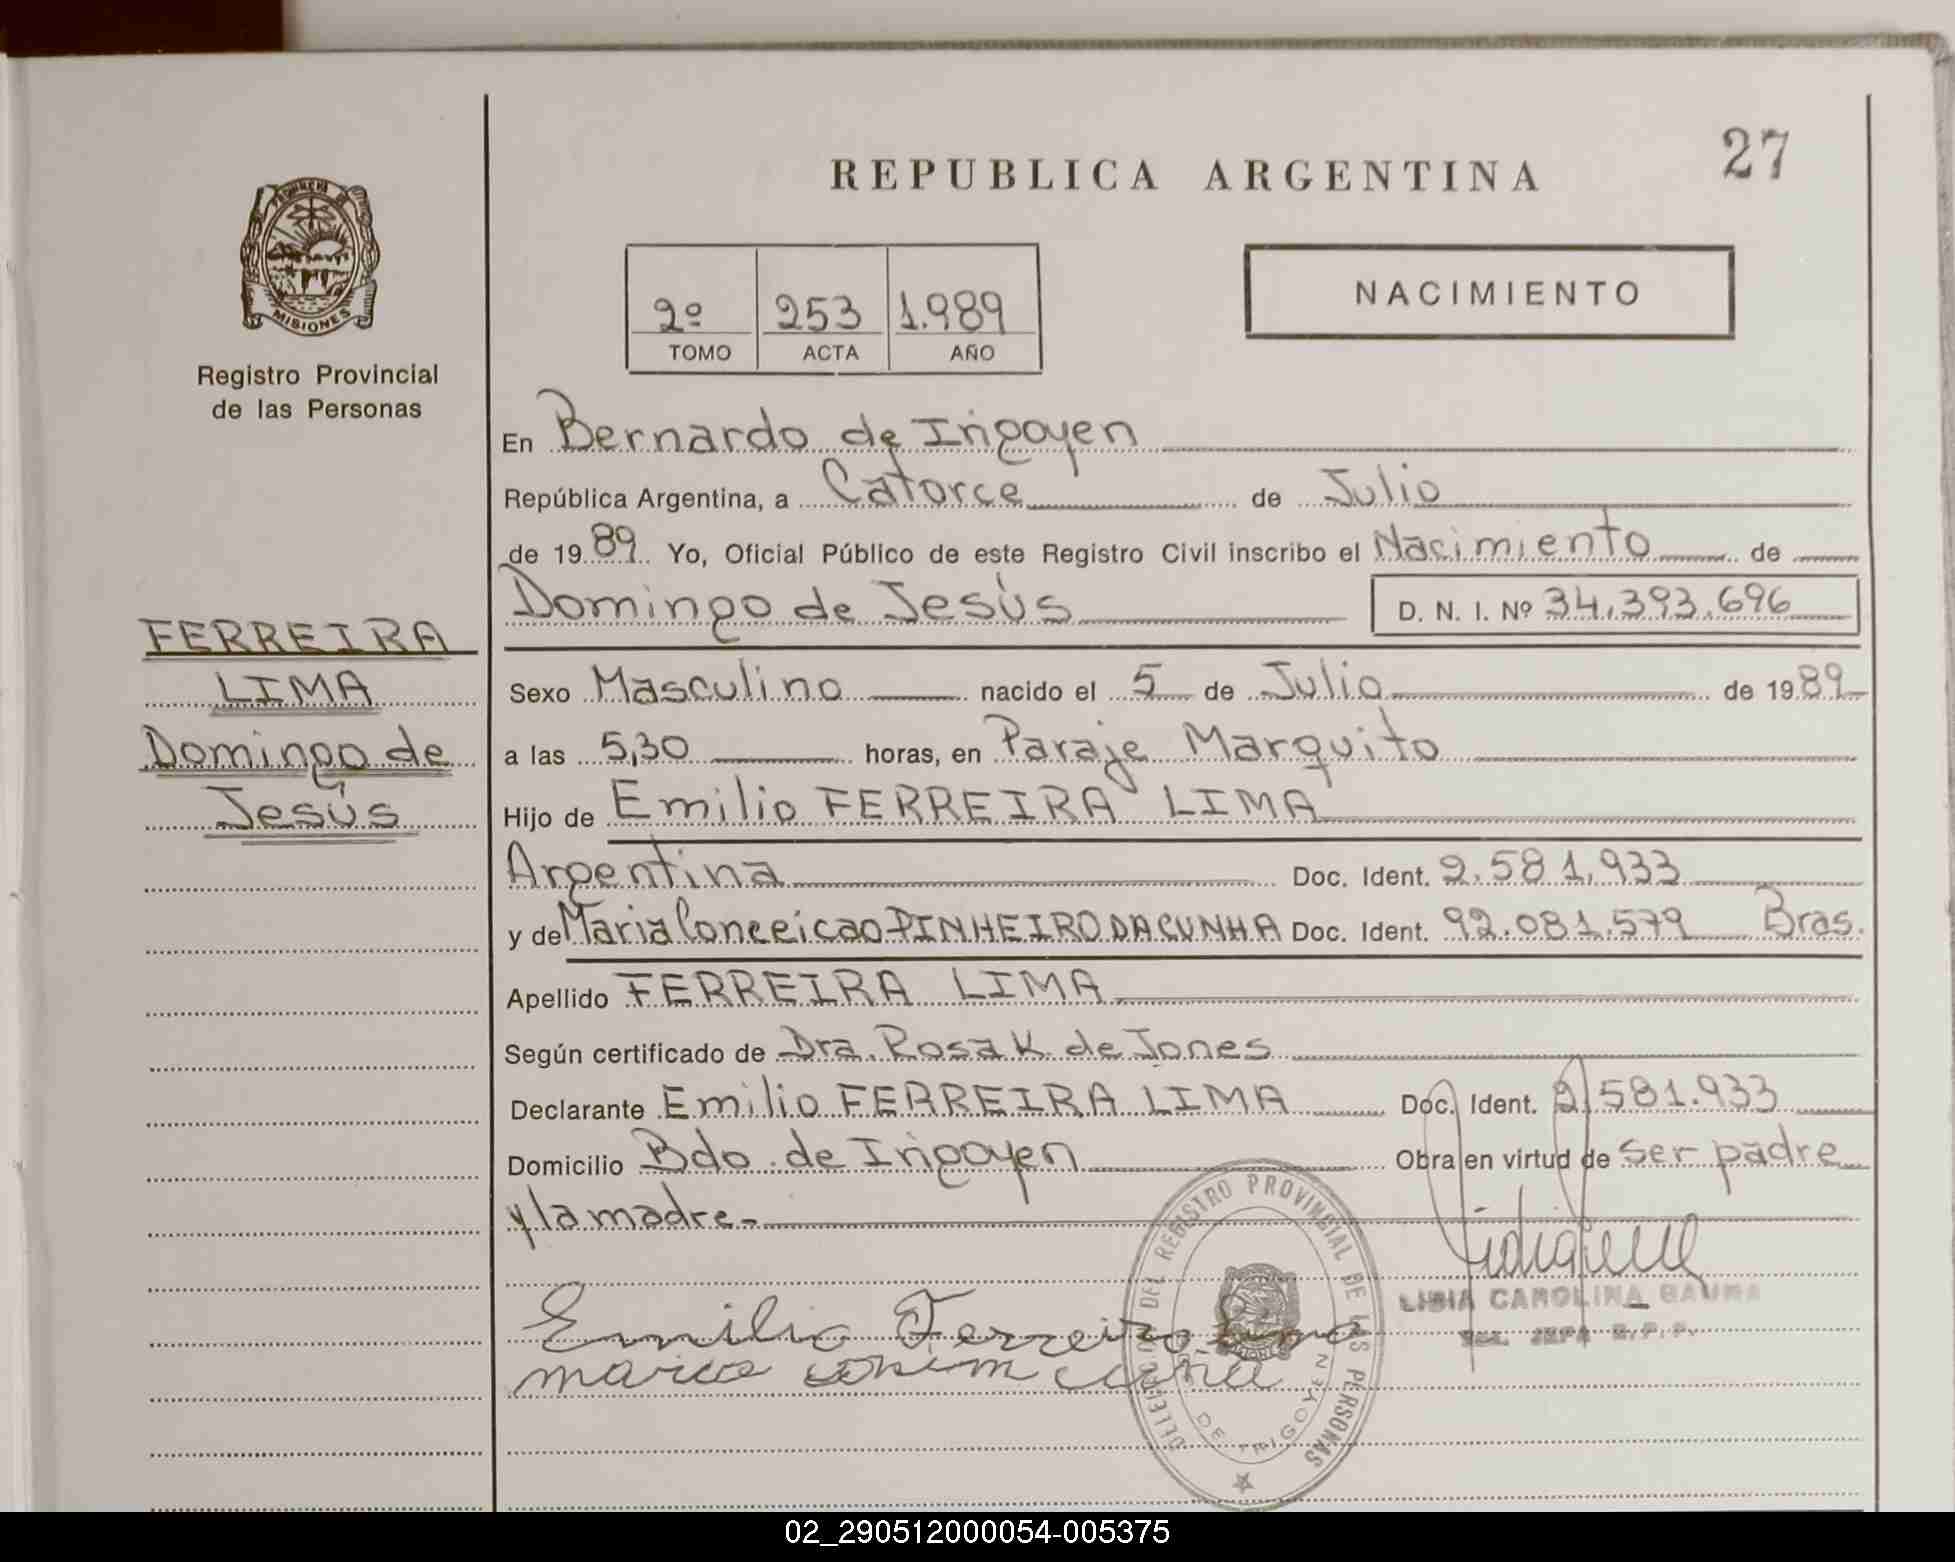 27
REPUBLICA ARGENTINA
MISIONES
Registro Provincial
de las Personas
2º 253 1.989
TOMO ACTA AÑO
NACIMIENTO
En Bernardo de Irigoyen
República Argentina, a Catorce de Julio
de 1989 Yo, Oficial Público de este Registro Civil inscribo el Nacimiento de
Domingo de Jesús D. N. I. Nº 34.393.696
FERREIRA
LIMA
Domingo de
Jesús
Sexo Masculino nacido el 5 de Julio de 1989
a las 5,30 horas, en Paraje Marquito
Hijo de Emilio FERREIRA LIMA
Argentina Doc. Ident. 2.581.933
y de Maria Conceicao PINHEIRO DA CUNHA Doc. Ident. 92.081.579 Bras.
Apellido FERREIRA LIMA
Según certificado de Dra. Rosa K. de Jones
Declarante Emilio FERREIRA LIMA Doc. Ident. 2.581.933
Domicilio Bdo. de Irigoyen Obra en virtud de ser padre
y la madre.-
Emilio Ferreira Lima
DEL REGISTRO PROVINCIAL DE LAS PERSONAS
DE IRIGOYEN
LIBIA CAROLINA
JEFA R.P.P.
02_290512000054-005375